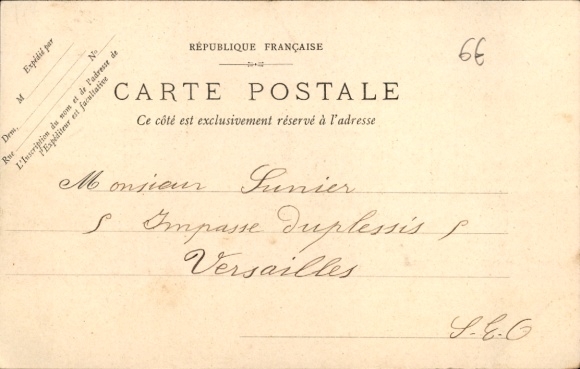 RÉPUBLIQUE FRANÇAISE
CARTE POSTALE
Ce côté est exclusivement réservé à l'adresse
Expédié par
M
Dem. No
Rue
L'Inscription du nom et de l'adresse de
l'Expéditeur est facultative
6€
Monsieur Sunier
5 Impasse Duplessis 5
Versailles
S.&.O